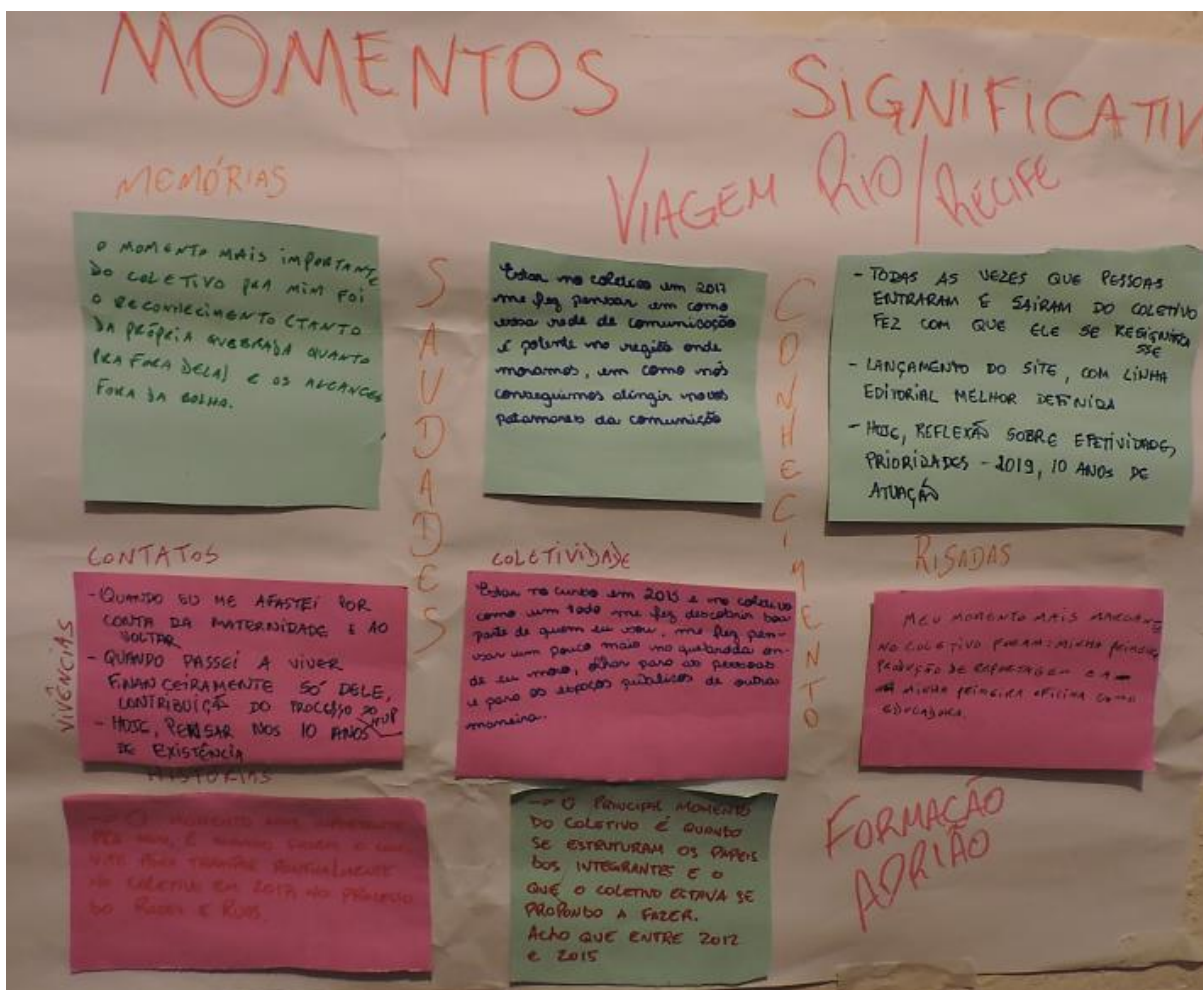 MOMENTOS SIGNIFICATIV
MEMÓRIAS
VIAGEM RIO/RECIFE
O MOMENTO MAIS IMPORTANTE
DO COLETIVO PRA MIM FOI
O RECONHECIMENTO (TANTO
DA PRÓPRIA QUEBRADA QUANTO
PRA FORA DELA) E OS ALCANCES
FORA DA BOLHA.
SAUDADES
Estar no coletivo em 2017
me fez pensar em como
essa rede de comunicação
é potente na região onde
moramos, em como nós
conseguimos atingir novos
patamares da comunição
CONHECIMENTO
- TODAS AS VEZES QUE PESSOAS
ENTRARAM E SAÍRAM DO COLETIVO
FEZ COM QUE ELE SE
SSE
- LANÇAMENTO DO SITE, COM LINHA
EDITORIAL MELHOR DEFINIDA
- HOJE, REFLEXÃO SOBRE EFETIVIDADE,
PRIORIDADES - 2019, 10 ANOS DE
ATUAÇÃO
CONTATOS
VIVÊNCIAS
- QUANDO EU ME AFASTEI POR
CONTA DA MATERNIDADE E AO
VOLTAR
- QUANDO PASSEI A VIVER
FINANCEIRAMENTE SÓ DELE,
CONTRIBUIÇÃO DO PROCESSO DO
- HOJE, PENSAR NOS 10 ANOS
DE EXISTÊNCIA
COLETIVIDADE
Estar no curso em 2015 e no coletivo
como um todo me fez descobrir boa
parte de quem eu sou, me fez pen-
sar um pouco mais na quebrada on-
de eu moro, olhar para as pessoas
e para os espaços públicos de outra
maneira.
RISADAS
MEU MOMENTO MAIS MARCANTE
NO COLETIVO FORAM: MINHA PRIMEIRA
PRODUÇÃO DE REPORTAGEM E A
MINHA PRIMEIRA OFICINA COMO
EDUCADORA.
HISTÓRIAS
-> O MOMENTO MAIS IMPORTANTE
PRA MIM, É QUANDO O CON
VITE PARA PONTUALMENTE
NO COLETIVO EM 2017 NO PROCESSO
DO REDES E RUAS.
-> O PRINCIPAL MOMENTO
DO COLETIVO É QUANDO
SE ESTRUTURAM OS PAPEIS
DOS INTEGRANTES E O
QUE O COLETIVO ESTAVA SE
PROPONDO A FAZER.
ACHO QUE ENTRE 2012
e 2015
FORMAÇÃO
ADRIÃO